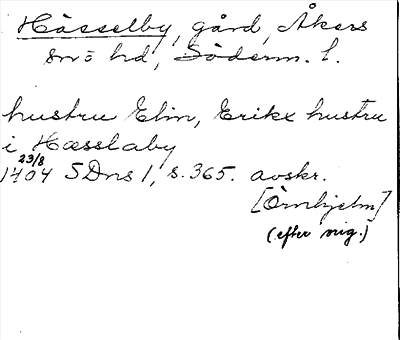 Hässelby, gård, Åkers
sn o hd, Söderm. l.
hustru Elin, Erikx hustru
i Hæsslaby
23/8
1404 SDns 1, s. 365. avskr.
[Örnhjelm]
(efter orig.)